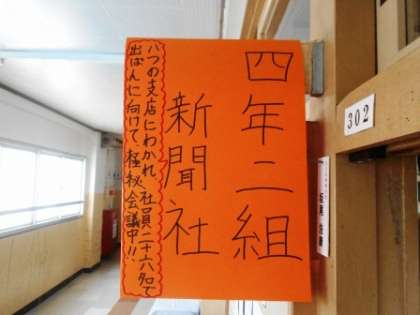 四年二組
新聞社
八つの支店にわかれ、社員二十六名で
出ぱんに向けて、極秘会議中!!
302